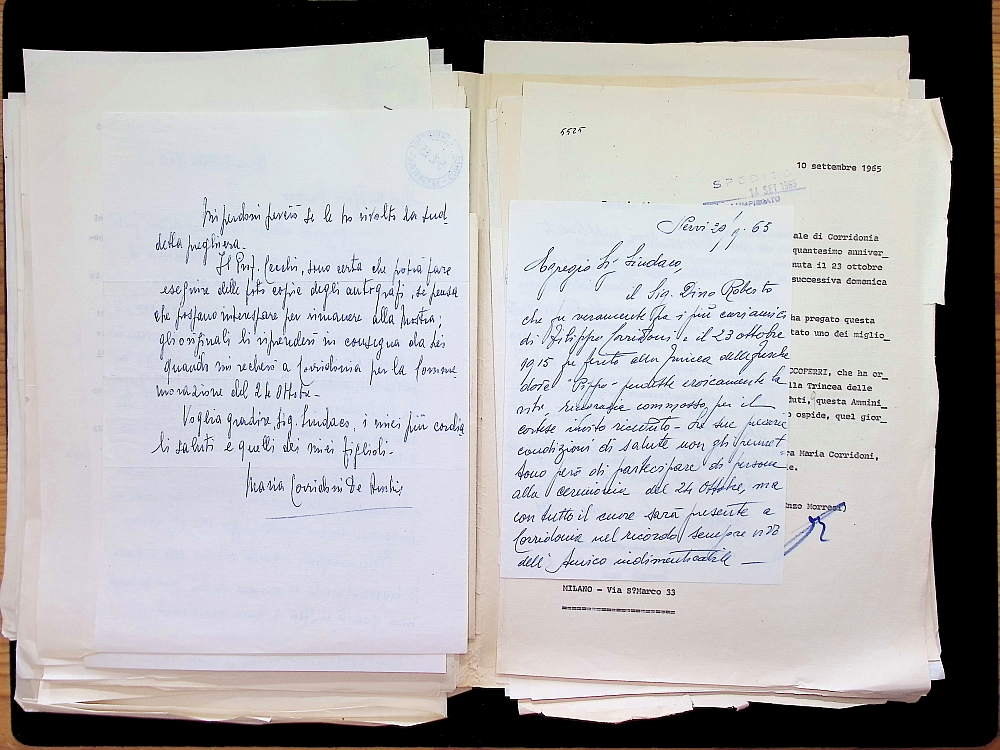 Mi perdoni perciò se le ho rivolto la sud
detta preghiera.
Il Prof. Cecchi, sono certa che potrà fare
eseguire delle foto copie degli autografi, se pensa
che possano interessare per rimanere alla Mostra;
gli originali li riprenderò in consegna da Lei
quando mi recherò a Corridonia per la Comme-
morazione del 24 Ottobre -
Voglia gradire, Sig. Sindaco, i miei più cordia
li saluti e quelli dei miei figlioli -
Maria Corridoni De Amicis
5525
10 settembre 1965
SPEDITO
14 SET 1965
Nervi 20/9. 65
Egregio Sig. Sindaco,
il Sig. Dino Roberto
che fu veramente fra i più cari amici
di Filippo Corridoni e il 23 ottobre
1915 fu ferito alla Trincea delle Frasche
dove "Pippo" perdette eroicamente la
vita, ringrazia commosso, per il
cortese invito ricevuto - Le sue precarie
condizioni di salute non gli permet
tono però di partecipare di persona
alla cerimonia del 24 Ottobre, ma
con tutto il cuore sarà presente a
Corridonia nel ricordo sempre vivo
dell'Amico indimenticabile —
ale di Corridonia
quantesimo anniver_
nuta il 23 ottobre
successiva domenica
ha pregato questa
tato uno dei miglio_
CCOFERRI, che ha or_
lla Trincea delle
duti, questa Ammini_
o ospide, quel gior_
ra Maria Corridoni,
te.
enzo Morresi)
MILANO - Via S?Marco 33